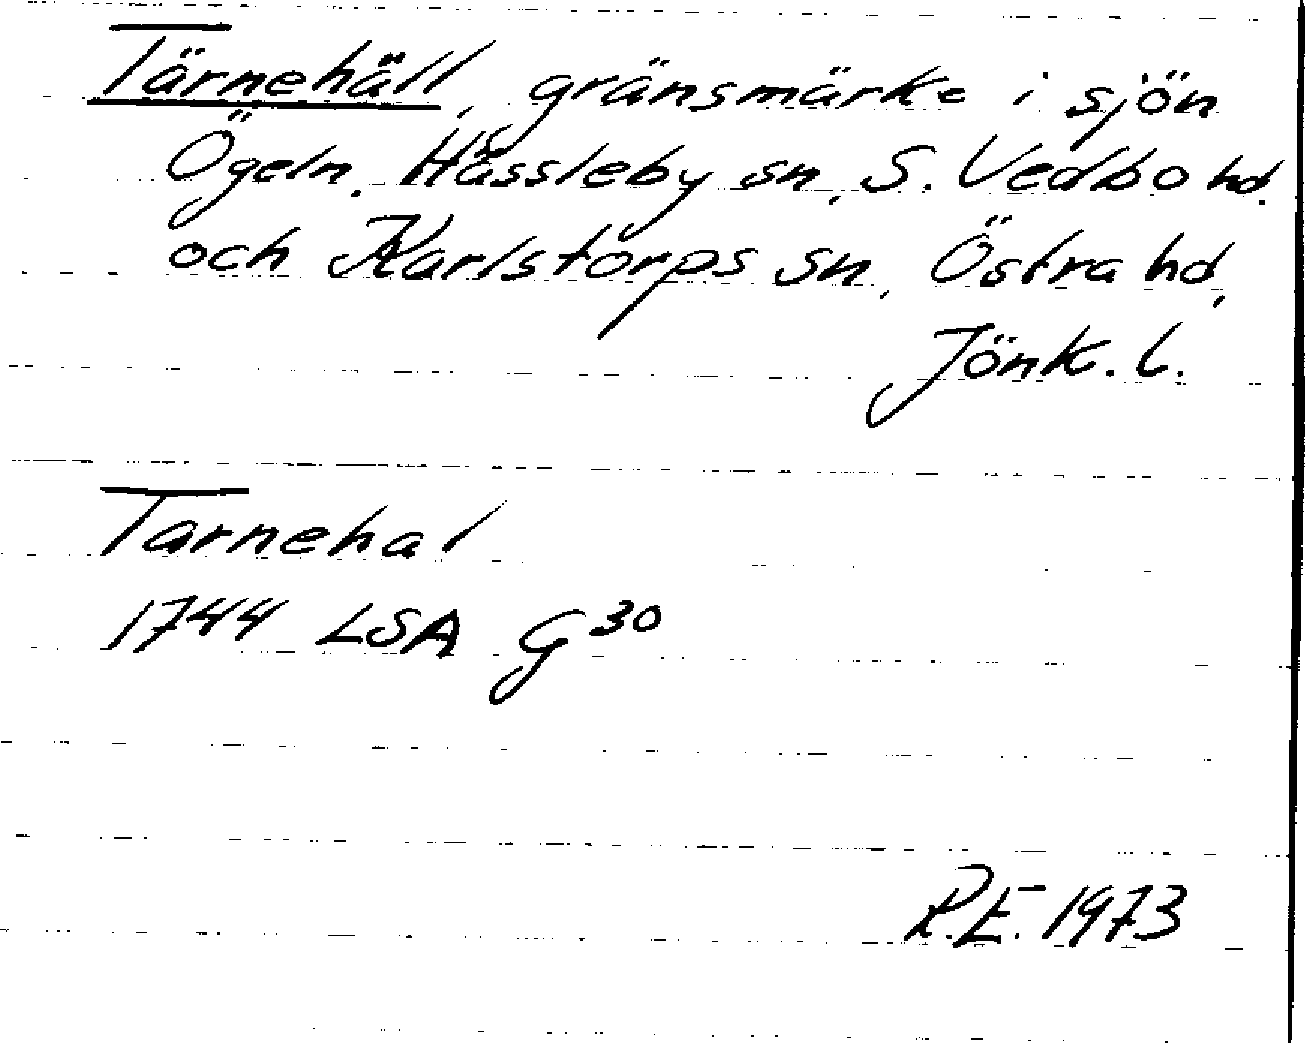 Tärnehäll, gränsmärke i sjön
Ögeln. Hässleby sn, S. Vedbo hd.
och Karlstorps sn, Östra hd,
Jönk. l.
Tarnehal
1744 LSA G 30
R.E. 1973